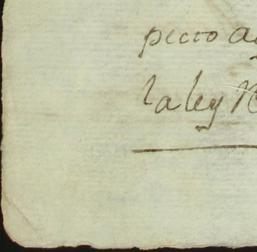 pecto a
la ley R